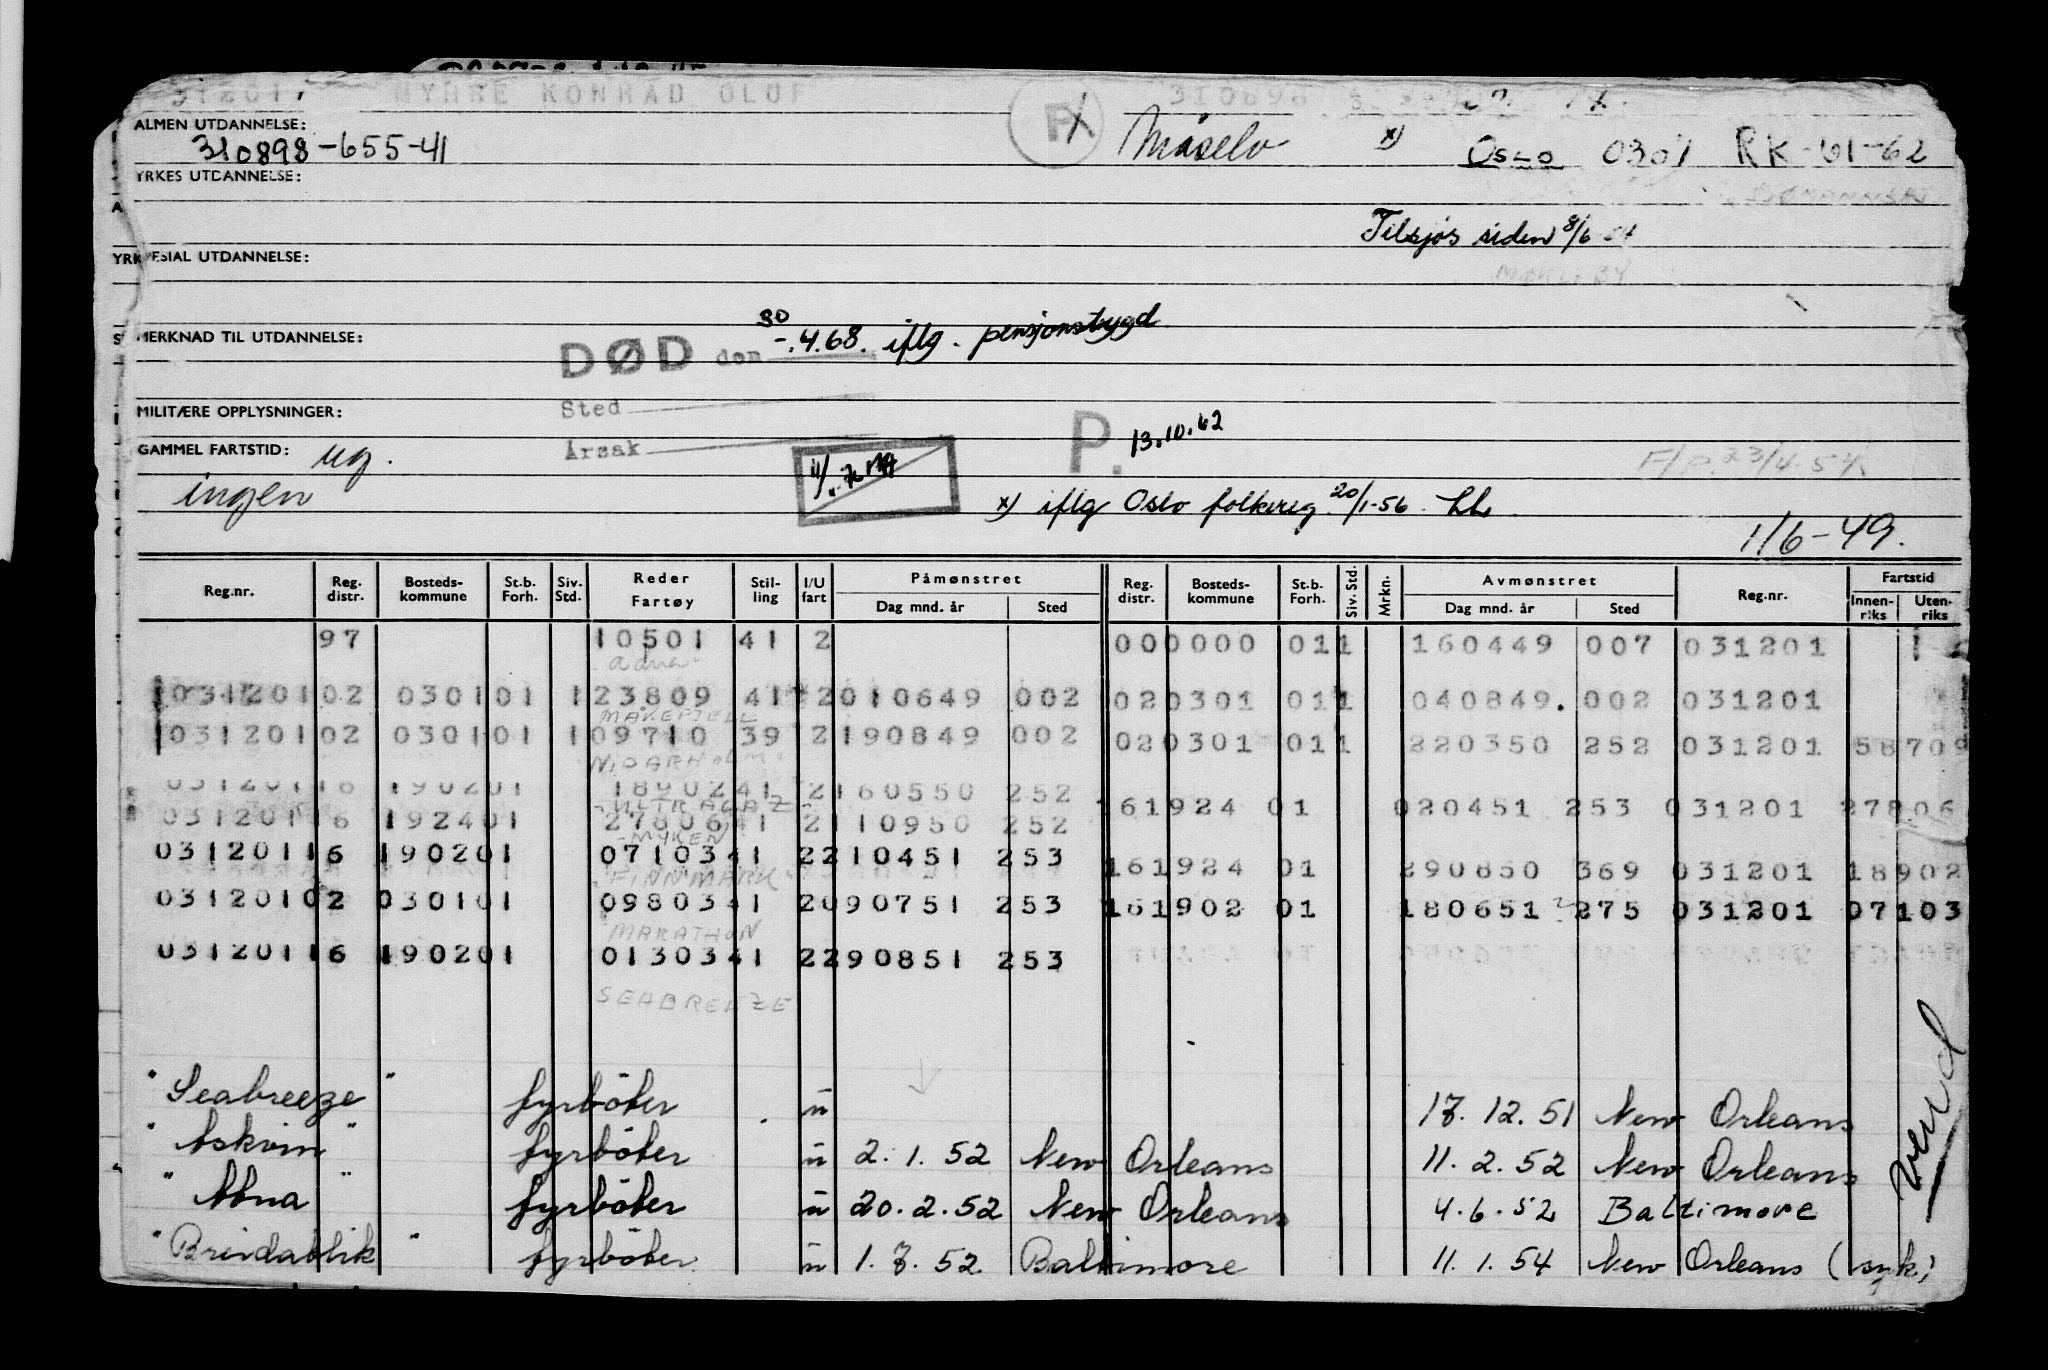 MYHRE KONRAD OLUF 310898
ALMEN UTDANNELSE:
310898-655-41 P X Måselv x) Oslo 0301 RK-01-62
YRKES UTDANNELSE:
Tilsjøs siden 8/6
SPESIAL UTDANNELSE:
MERKNAD TIL UTDANNELSE:
DØD den 30 -.4.68. iflg. pensjonstrygd
Sted
MILITÆRE OPPLYSNINGER:
Årsak
P. 13.10.62
GAMMEL FARTSTID: ug.
F/P. 23/4-54
ingen
x) iflg Oslo folkereg. 20/1-56. LL
1/6-49.
Reg.nr. Reg. distr. Bosteds-kommune St.b. Forh. Siv. Std. Reder Fartøy Stil-ling I/U fart Påmønstret Dag mnd. år Sted Reg. distr. Bosteds-kommune St.b. Forh. Siv. Std. Mrkn. Avmønstret Dag mnd. år Sted Reg.nr. Fartstid Innen-riks Uten-riks
97 10501 41 2 000000 011 160449 007 031201
031201 02 0301 01 1 23809 41 2 010649 002 020301 011 040849. 002 031201
MÅKEFJELL
031201 02 0301 01 1 09710 39 2 190849 002 020301 011 220350 252 031201 58709
NIDARHOLM
031201 16 1902 01 18902 41 2 160550 252 161924 01 020451 253 031201 27806
ULTRAGAZ
031201 16 1924 01 27806 41 2 110950 252
MYKEN
031201 16 1902 01 07103 41 2 210451 253 161924 01 290850 369 031201 18902
FINNMARK
031201 02 0301 01 09803 41 2 090751 253 161902 01 180651 275 031201 07103
MARATHON
031201 16 1902 01 01303 41 2 290851 253
SEABREEZE
"Seabreeze" fyrböter u 17. 12. 51 New Orleans
"Askvin" fyrböter u 2. 1. 52 New Orleans 11. 2. 52 New Orleans
"Abna" fyrböter u 20. 2. 52 New Orleans 4. 6. 52 Baltimore
"Breidablik" fyrböter u 1. 7. 52 Baltimore 11. 1. 54 New Orleans (syk)
vend